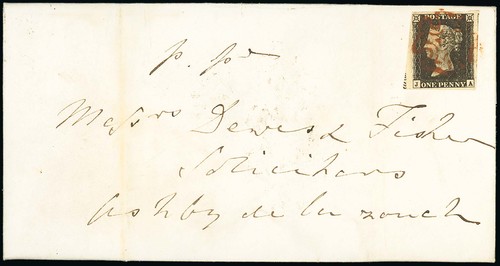 POSTAGE
J ONE PENNY A
p. pr
Messrs Dewes & Fisher
Solicitors
Ashby de la zouch